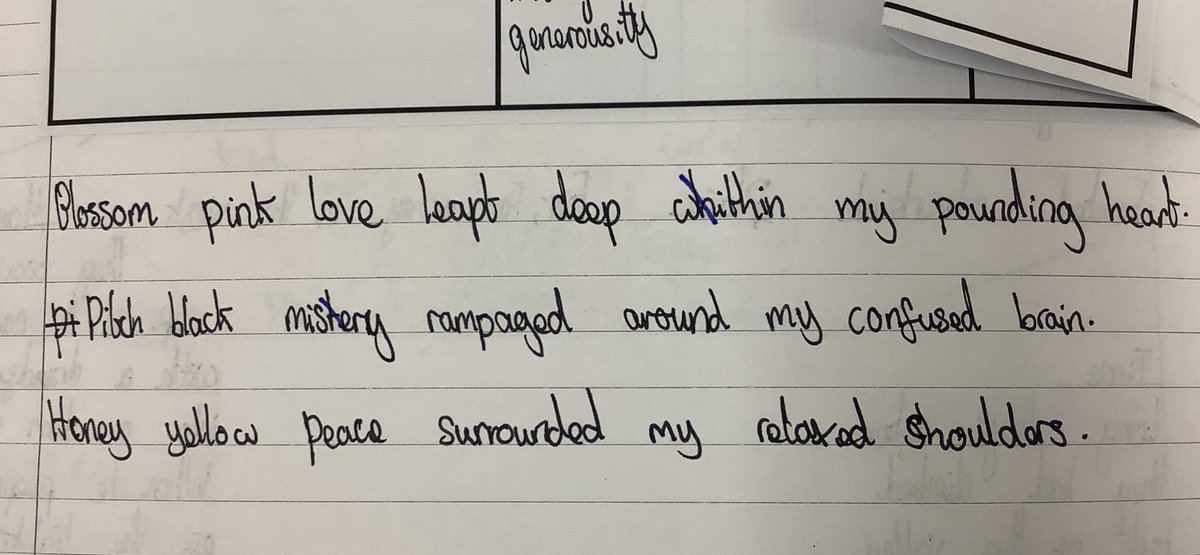 generousity
Blossom pink love leapt deep whithin my pounding heart.
pi Pitch black mistery rampaged around my confused brain.
Honey yellow peace surrounded my relaxed shoulders.